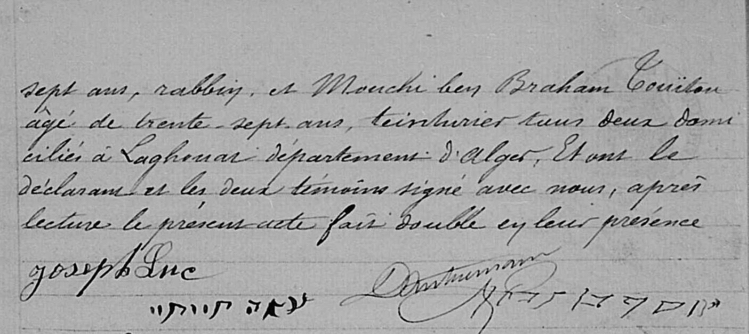 sept ans, rabbin, et Mouchi ben Braham Touïtou
âgé de trente-sept ans, teinturier tous deux domi
ciliés à Laghouat département d'Alger. Et ont le
déclarant et les deux témoins signé avec nous, après
lecture le présent acte fait double en leur présence
Joseph Luc